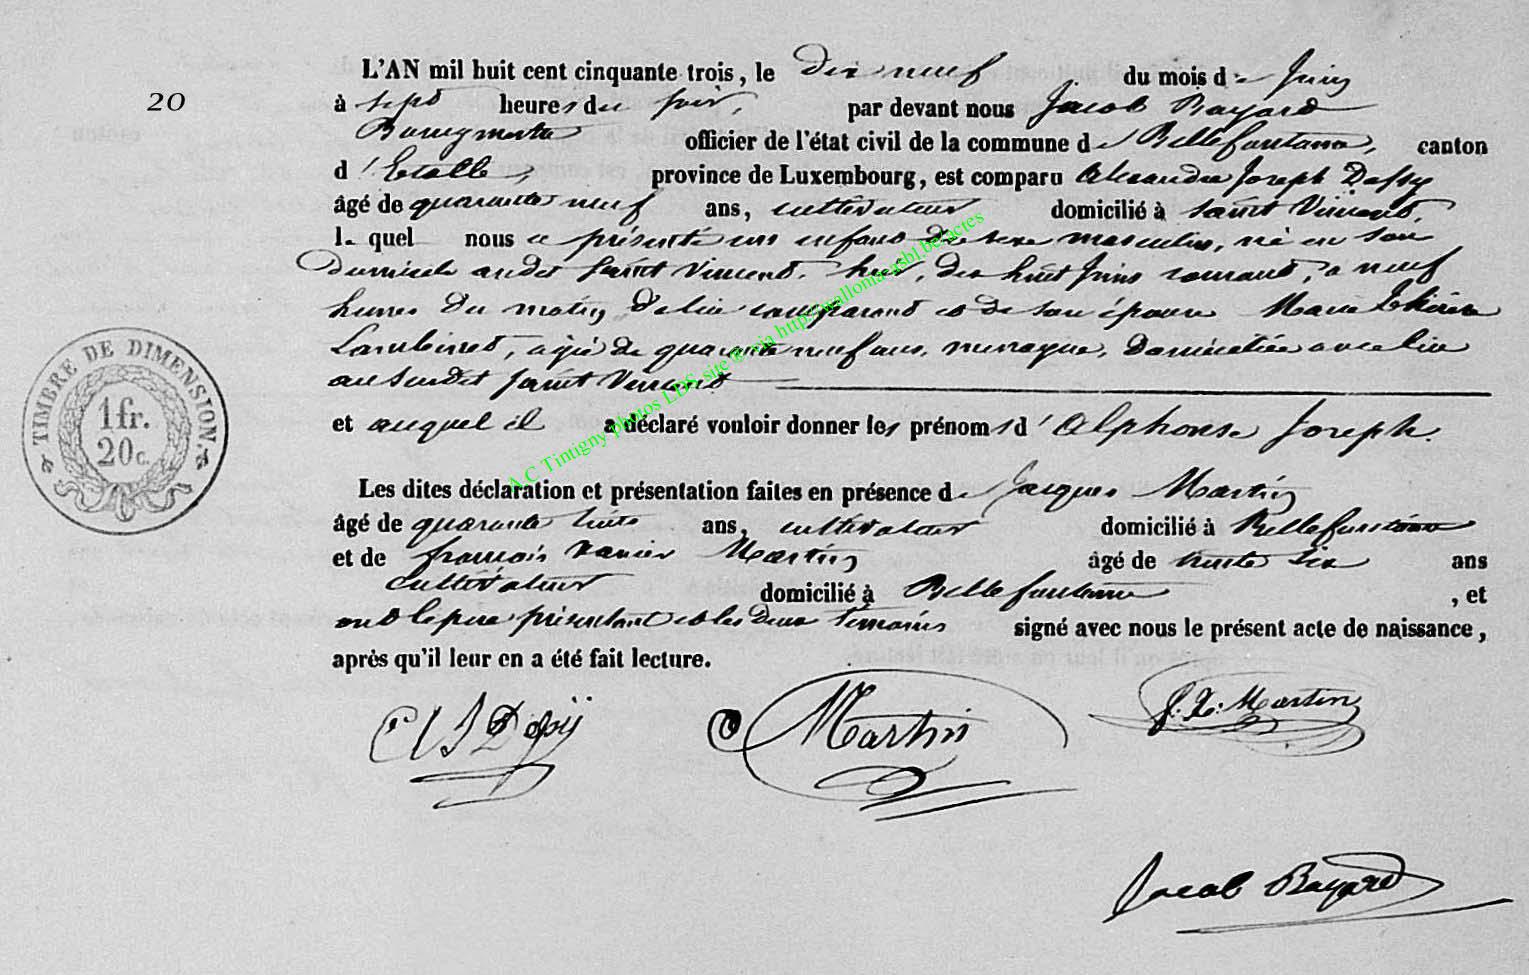 20
L'AN mil huit cent cinquante trois, le dix neuf du mois de Juin
à sept heures du soir, par devant nous Jacob Bayard
Bourgmestre officier de l'état civil de la commune de Bellefontaine, canton
d'Etalle, province de Luxembourg, est comparu Alexandre Joseph
âgé de quarante neuf ans, cultivateur domicilié à Saint Vincent,
lequel nous a présenté un enfant de sexe masculin, né en son
domicile audit Saint Vincent, hier, dix huit Juin courant, à neuf
heures du matin, de lui comparant et de son épouse Marie Thérèse
Lambinet, agée de quarante neuf ans, menagere, domiciliée avec lui
au susdit Saint Vincent
et auquel il a déclaré vouloir donner les prénoms d'Alphonse Joseph.
Les dites déclaration et présentation faites en présence de Jacques Martin
âgé de quarante huit ans, cultivateur domicilié à Bellefontaine
et de françois Xavier Martin âgé de trente six ans
cultivateur domicilié à Bellefontaine, et
ont le père présentant et les deux témoins signé avec nous le présent acte de naissance,
après qu'il leur en a été fait lecture.
Martin
f. X. Martin
Jacob Bayard
TIMBRE DE DIMENSION.
1 fr.
20 c.
A.C Tintigny photos LDS site & via http://mallomacasbl.be/actes